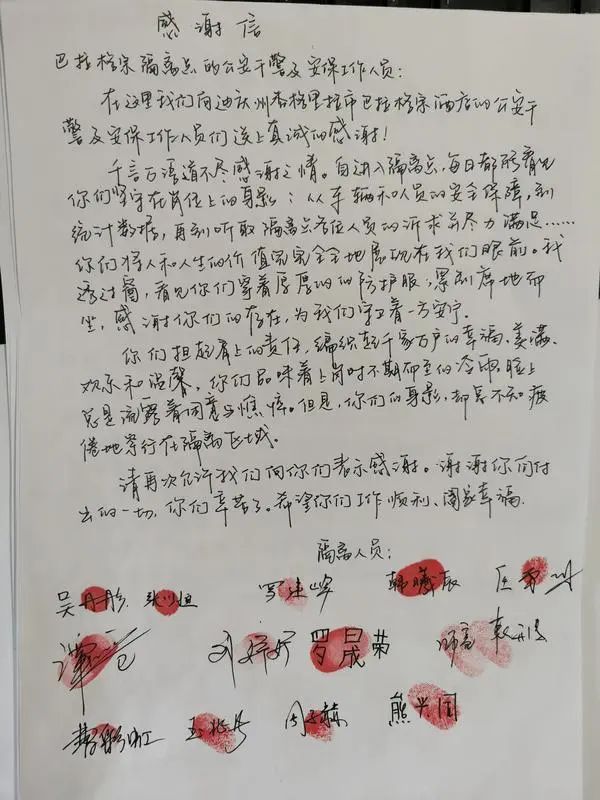 感谢信
巴拉格宗隔离点的公安干警及安保工作人员：
在这里我们向迪庆州香格里拉市巴拉格宗酒店的公安干
警及安保工作人员们送上真诚的感谢！
千言万语道不尽感谢之情。自进入隔离点，每日都能看见
你们坚守在岗位上的身影：从车辆和人员的安全保障，到
统计数据，再到听取隔离点各位人员的诉求并尽力满足……
你们将人和人生的价值完完全全地展现在我们眼前。我
透过窗，看见你们穿着厚厚的防护服，累到席地而
坐，感谢你们的存在，为我们守卫着一方安宁。
你们担起肩上的责任，编织起千家万户的幸福、美满、
欢乐和温馨，你们品味着上岗时不期而至的冷雨，脸上
总是流露着困意与憔悴。但是，你们的身影，却是不知疲
倦地穿行在隔离区域。
请再次允许我们向你们表示感谢。谢谢你们付
出的一切，你们辛苦了。希望你们工作顺利、阖家幸福
隔离人员：
吴丹彤 张 恒 罗建峰 韩曦辰
刘 罗晟荣
熊